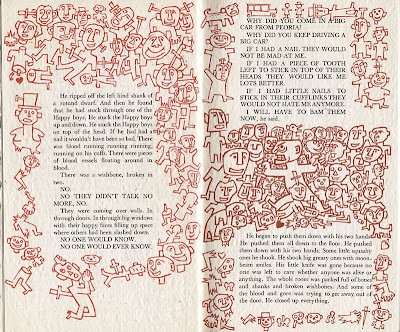 He ripped off the left hind shank of
a round dwarf. And then he found
that he had stuck through one of the
Happy boys. He stuck the Happy boys
up and down. He stuck the Happy boys
on top of the head. If he had had a
nail it wouldn't have been so bad. There
was blood running running running,
running on his cuffs. There were pieces
of blood vessels floating around in
blood.
There was a wishbone, broken in
two.
NO.
NO THEY DIDN'T TALK NO
MORE, NO.
They were coming over walls. In
through doors. In through big windows
with their happy faces filling up space
where others had been slashed down.
NO ONE WOULD KNOW.
NO ONE WOULD EVER KNOW.
WHY DID YOU COME IN A BIG
CAR FROM PEORIA?
WHY DID YOU KEEP DRIVING A
BIG CAR?
IF I HAD A NAIL, THEY WOULD
NOT BE MAD AT ME.
IF I HAD A PIECE OF TOOTH
LEFT TO STICK IN TOP OF THEIR
HEADS THEY WOULD LIKE ME
LOTS BETTER.
IF I HAD LITTLE NAILS TO
STICK IN THEIR CUFFLINKS THEY
WOULD NOT HATE ME ANYMORE.
I WILL HAVE TO BAM THEM
NOW, he said.
He began to push them down with his two hands.
He pushed them all down to the floor. He pushed
them down with his two hands. Some little squashy
ones he shook. He shook big greasy ones with moon-
beam smiles. His little knife was gone because no
one was left to care whether anyone was alive or
anything. The whole room was packed full of bones
and shanks and broken wishbones. And some of
the blood and gore was trying to get away out of
the door. He closed up everything.